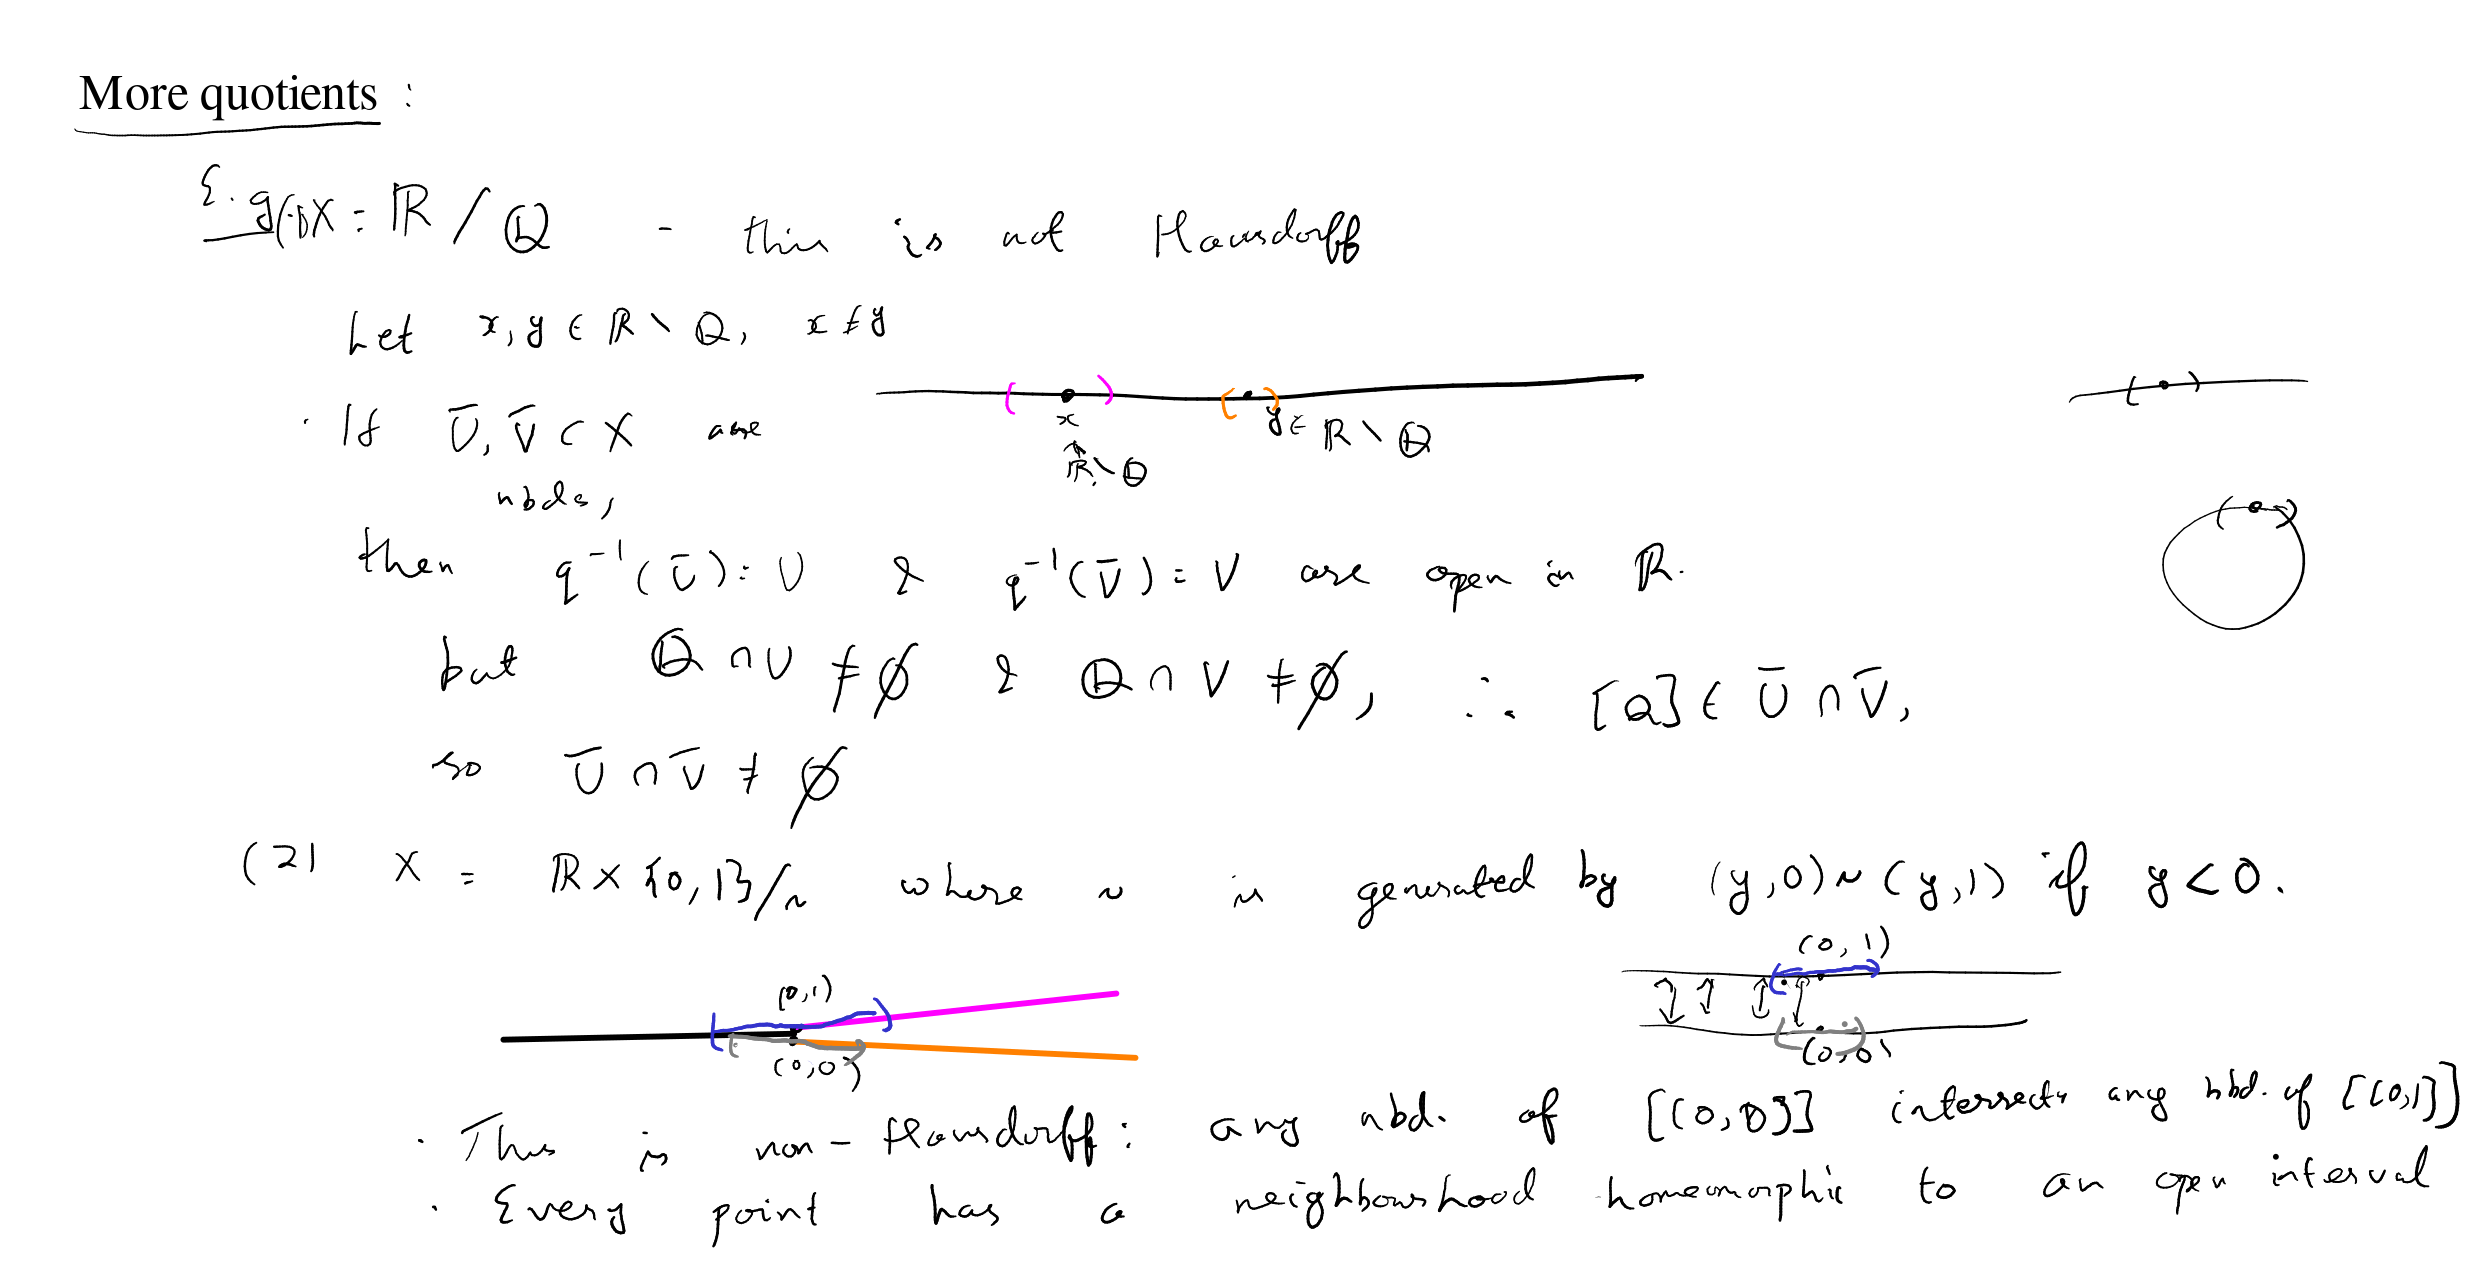 More quotients :
E.g. (1) X = ℝ / ℚ - this is not Hausdorff
Let x, y ∈ ℝ \ ℚ, x ≠ y
x
y ∈ ℝ \ ℚ
ℝ \ ℚ
· If Ū, V̄ ⊂ X are
nbds,
then q⁻¹(Ū) = U & q⁻¹(V̄) = V are open in ℝ.
but ℚ ∩ U ≠ ∅ & ℚ ∩ V ≠ ∅, ∴ [ℚ] ∈ Ū ∩ V̄,
so Ū ∩ V̄ ≠ ∅
(2) X = ℝ × {0,1}/~ where ~ is generated by (y,0) ~ (y,1) if y < 0.
(0,1)
(0,0)
(0,1)
(0,0)
· This is non-Hausdorff: any nbd. of [(0,0)] intersects any nbd. of [(0,1)]
· Every point has a neighbourhood homeomorphic to an open interval